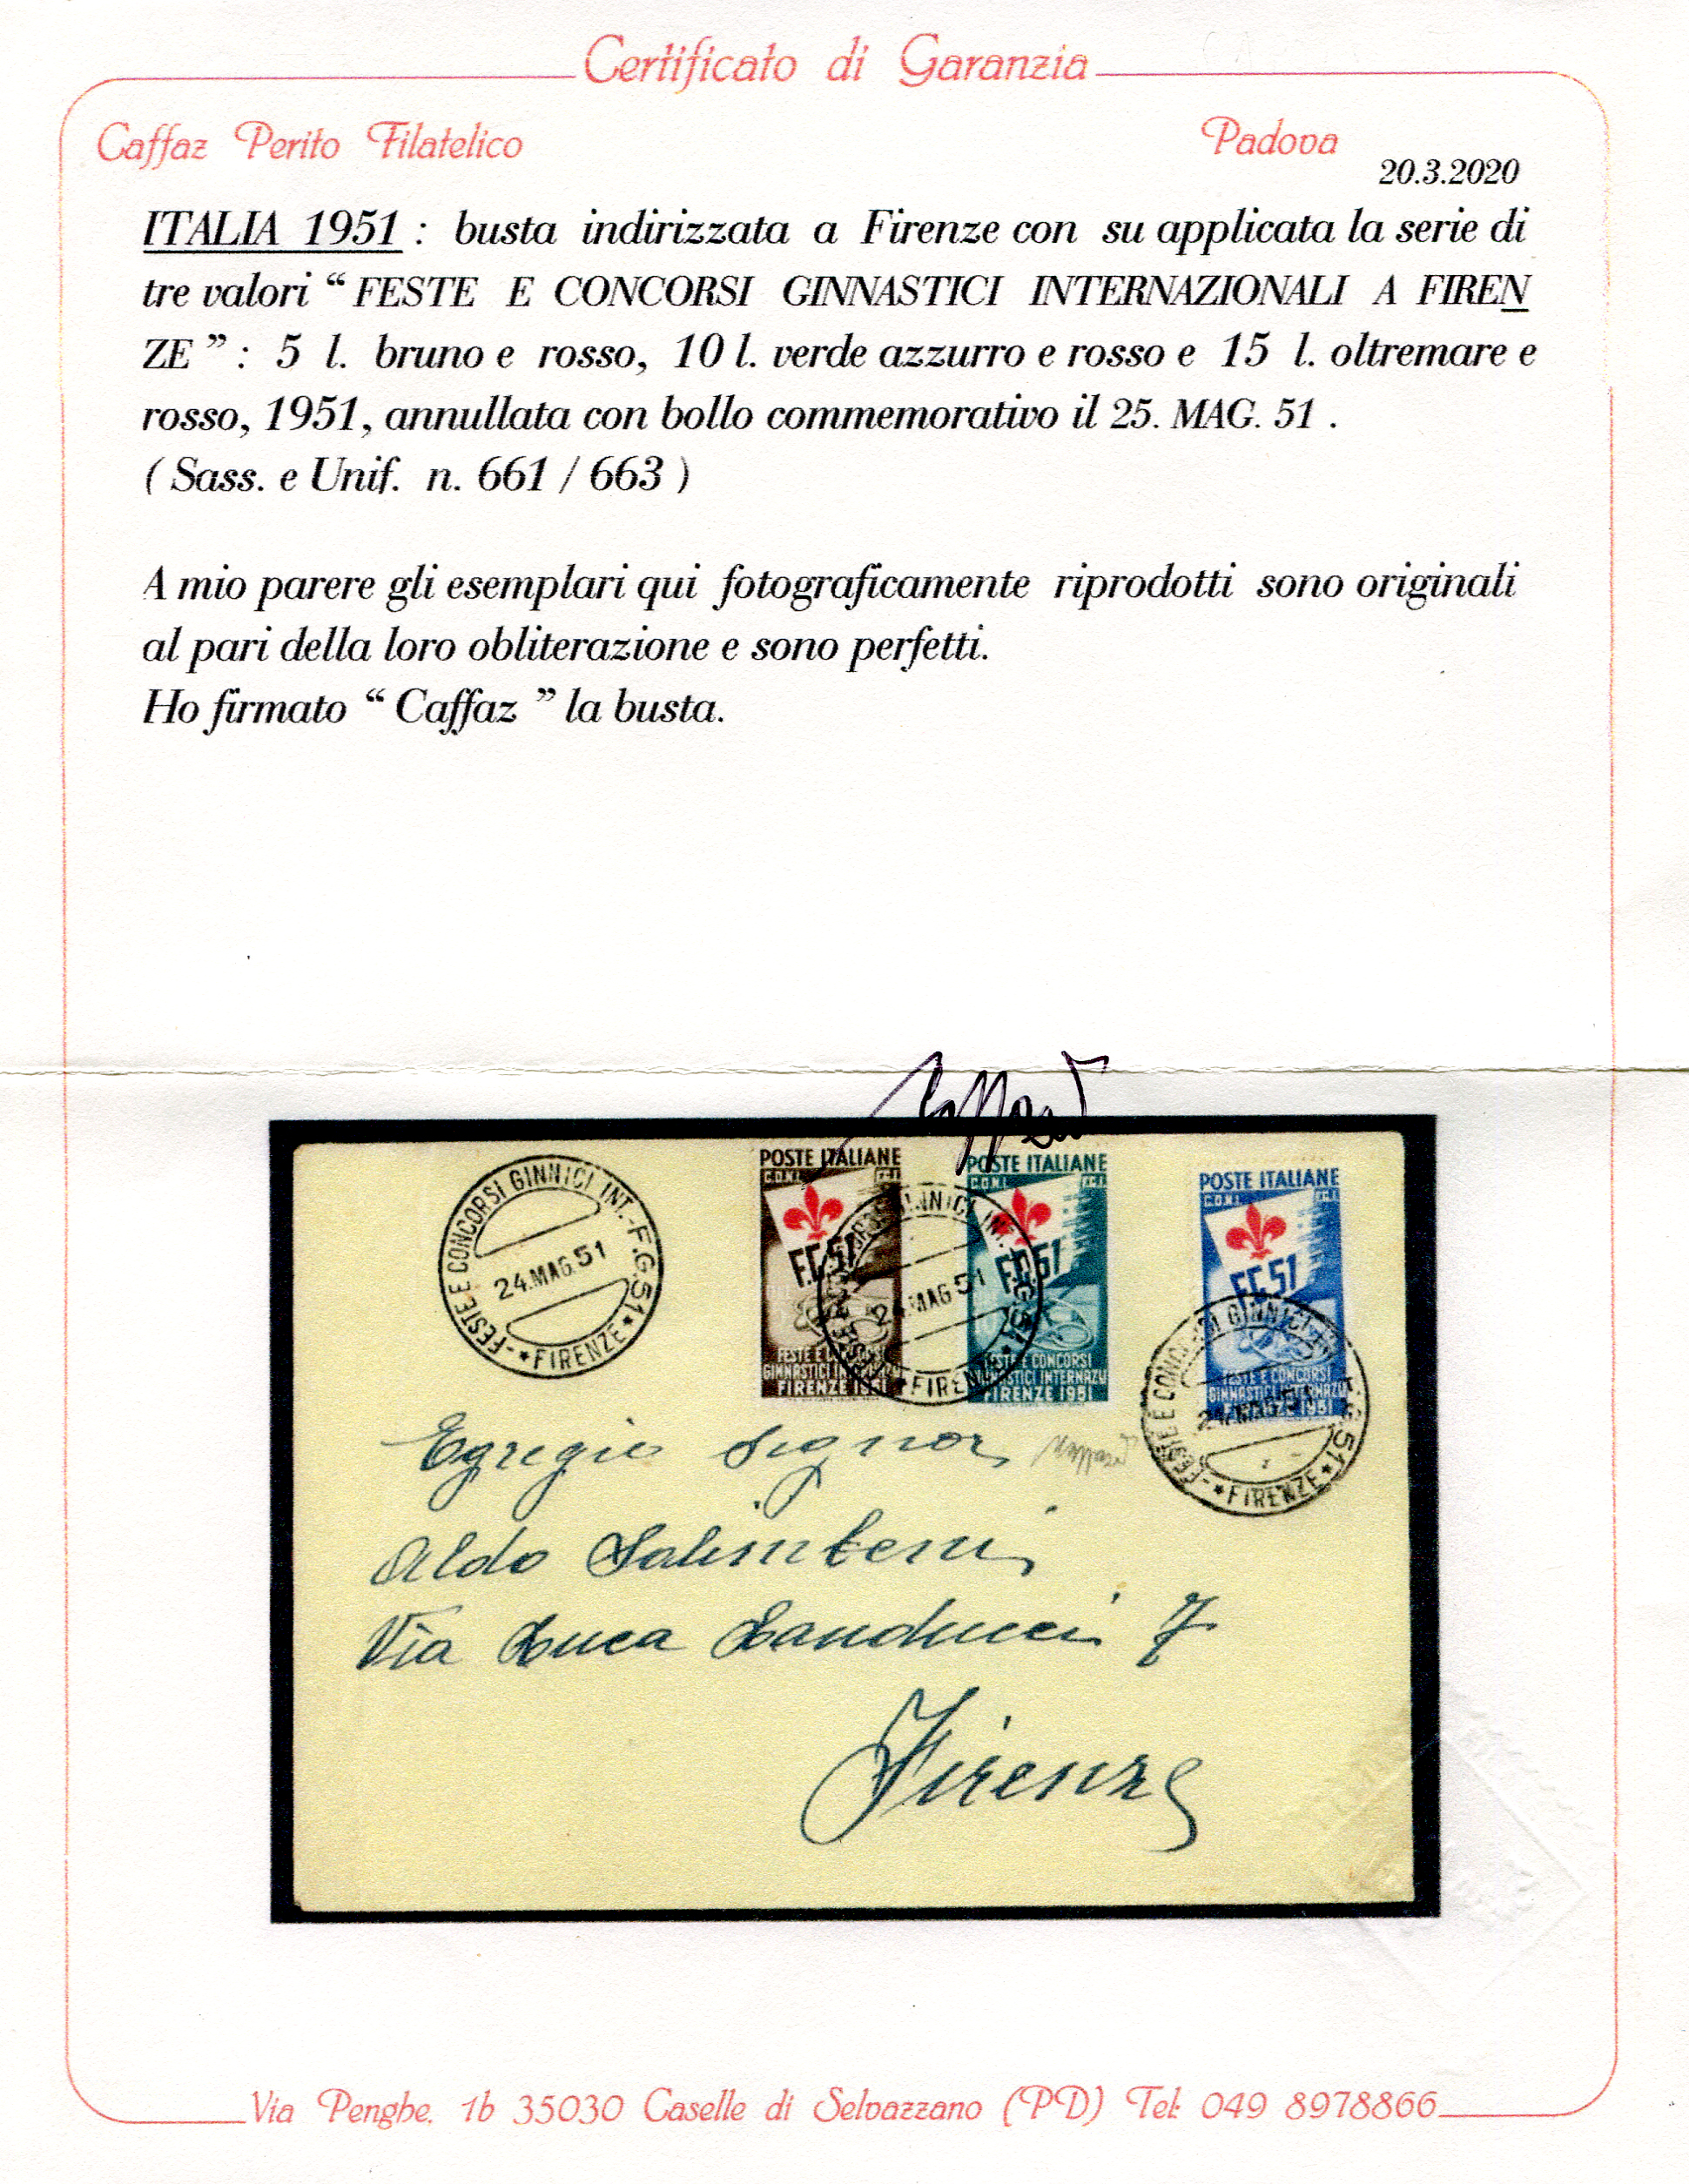 Certificato di Garanzia
Caffaz Perito Filatelico
Padova
20.3.2020
ITALIA 1951 : busta indirizzata a Firenze con su applicata la serie di
tre valori “ FESTE E CONCORSI GINNASTICI INTERNAZIONALI A FIREN
ZE ” : 5 l. bruno e rosso, 10 l. verde azzurro e rosso e 15 l. oltremare e
rosso, 1951, annullata con bollo commemorativo il 25. MAG. 51 .
( Sass. e Unif. n. 661 / 663 )
A mio parere gli esemplari qui fotograficamente riprodotti sono originali
al pari della loro obliterazione e sono perfetti.
Ho firmato “ Caffaz ” la busta.
Caffaz
FESTE E CONCORSI GINNICI INT.-F.G.51
24.MAG.51
*FIRENZE*
POSTE ITALIANE
C.O.N.I. F.G.I.
F.G.51
FESTE E CONCORSI
GINNASTICI
FIRENZE 1951
24 MAG 51
FIRENZE
POSTE ITALIANE
C.O.N.I. F.G.I.
F.G.51
FESTE E CONCORSI
GINNASTICI INTERNAZ
FIRENZE 1951
POSTE ITALIANE
C.O.N.I. F.G.I.
F.G.51
FESTE E CONCORSI
GINNASTICI INTERNAZ
FIRENZE 1951
FESTE E CONCORSI GINNICI
24.MAG.51
*FIRENZE*
Egregio Signor
Caffaz
Aldo Salimbeni
Via Luca Landucci 7
Firenze
Via Penghe, 1b 35030 Caselle di Selvazzano (PD) Tel: 049 8978866